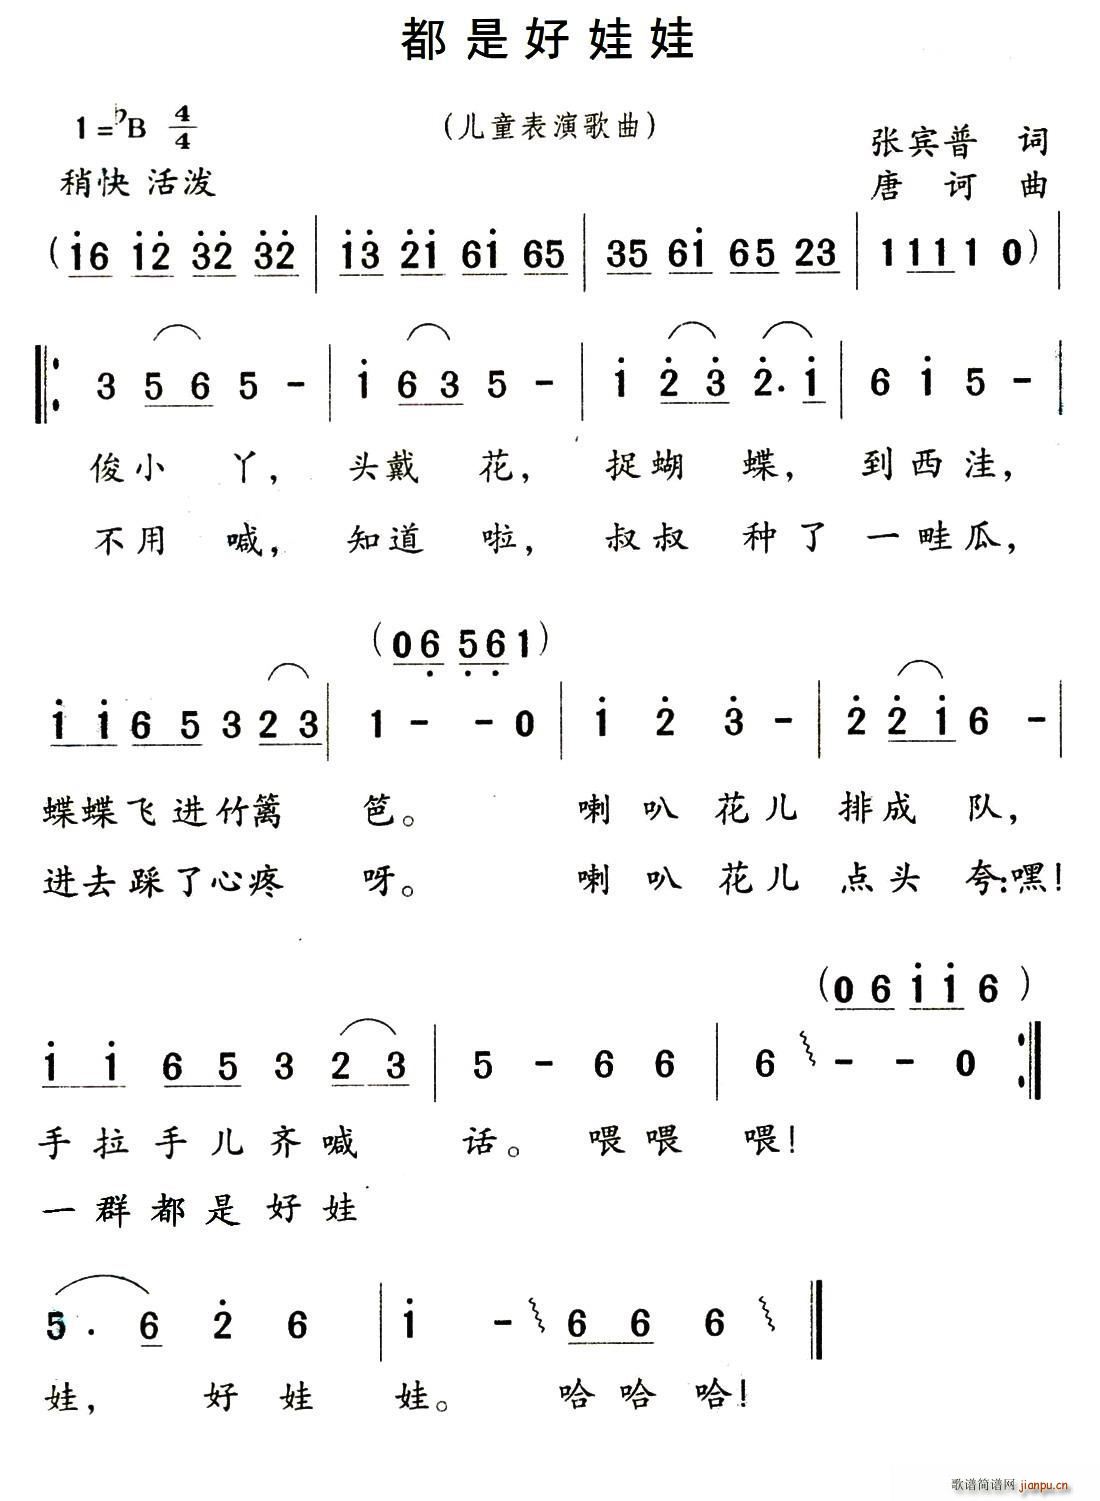 都是好娃娃
1=♭B 4/4
(儿童表演歌曲)
张宾普 词
稍快 活泼
唐 诃 曲
(i̇6 i̇2̇ 3̇2̇ 3̇2̇ | i̇3̇ 2̇i̇ 6i̇ 65 | 35 6i̇ 65 23 | 1 1 1 1 0) |
‖: 3 5 6 5 - | i̇ 6 3 5 - | i̇ 2̇ 3̇ 2̇. i̇ | 6 i̇ 5 - |
俊小 丫, 头戴 花, 捉蝴 蝶, 到西洼,
不用 喊, 知道 啦, 叔叔 种了 一畦瓜,
(0 6̣ 5̣ 6̣ 1)
i̇ i̇ 6 5 3 2 3 | 1 - - 0 | i̇ 2̇ 3̇ - | 2̇ 2̇ i̇ 6 - |
蝶蝶飞进竹篱 笆。 喇叭花儿 排成 队,
进去踩了心疼 呀。 喇叭花儿 点头 夸:嘿!
(0 6 i̇ i̇ 6)
i̇ i̇ 6 5 3 2 3 | 5 - 6 6 | 6 - - 0 :‖
手拉手儿齐喊 话。 喂喂 喂!
一群都是好娃
5. 6 2̇ 6 | i̇ - 6 6 6 ‖
娃, 好娃 娃。 哈哈哈!
歌谱简谱网 jianpu.cn